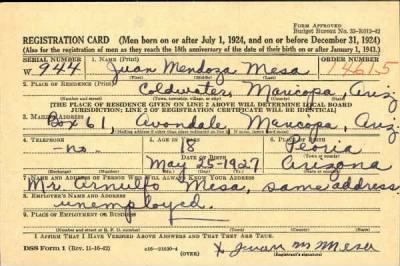 FORM APPROVED
Budget Bureau No. 33-R012-42
REGISTRATION CARD (Men born on or after July 1, 1924, and on or before December 31, 1924)
(Also for the registration of men as they reach the 18th anniversary of the date of their birth on or after January 1, 1943.)
SERIAL NUMBER 1. NAME (Print) ORDER NUMBER
W 944 Juan Mendoza Mesa 14615
(First) (Middle) (Last)
2. PLACE OF RESIDENCE (Print)
Coldwater Maricopa, Ariz
[THE PLACE OF RESIDENCE GIVEN ON LINE 2 ABOVE WILL DETERMINE LOCAL BOARD
JURISDICTION; LINE 2 OF REGISTRATION CERTIFICATE WILL BE IDENTICAL]
3. MAILING ADDRESS
Box 61, Avondale, Maricopa, Ariz.
4. TELEPHONE 5. AGE IN YEARS 6. PLACE OF BIRTH
no. 18 Peoria
DATE OF BIRTH
May 25 1927 Arizona
7. NAME AND ADDRESS OF PERSON WHO WILL ALWAYS KNOW YOUR ADDRESS
Mr. Arnulfo Mesa, same address
8. EMPLOYER'S NAME AND ADDRESS
unemployed.
9. PLACE OF EMPLOYMENT OR BUSINESS
I AFFIRM THAT I HAVE VERIFIED ABOVE ANSWERS AND THAT THEY ARE TRUE.
DSS Form 1 (Rev. 11-16-42) (OVER) x Juan M Mesa